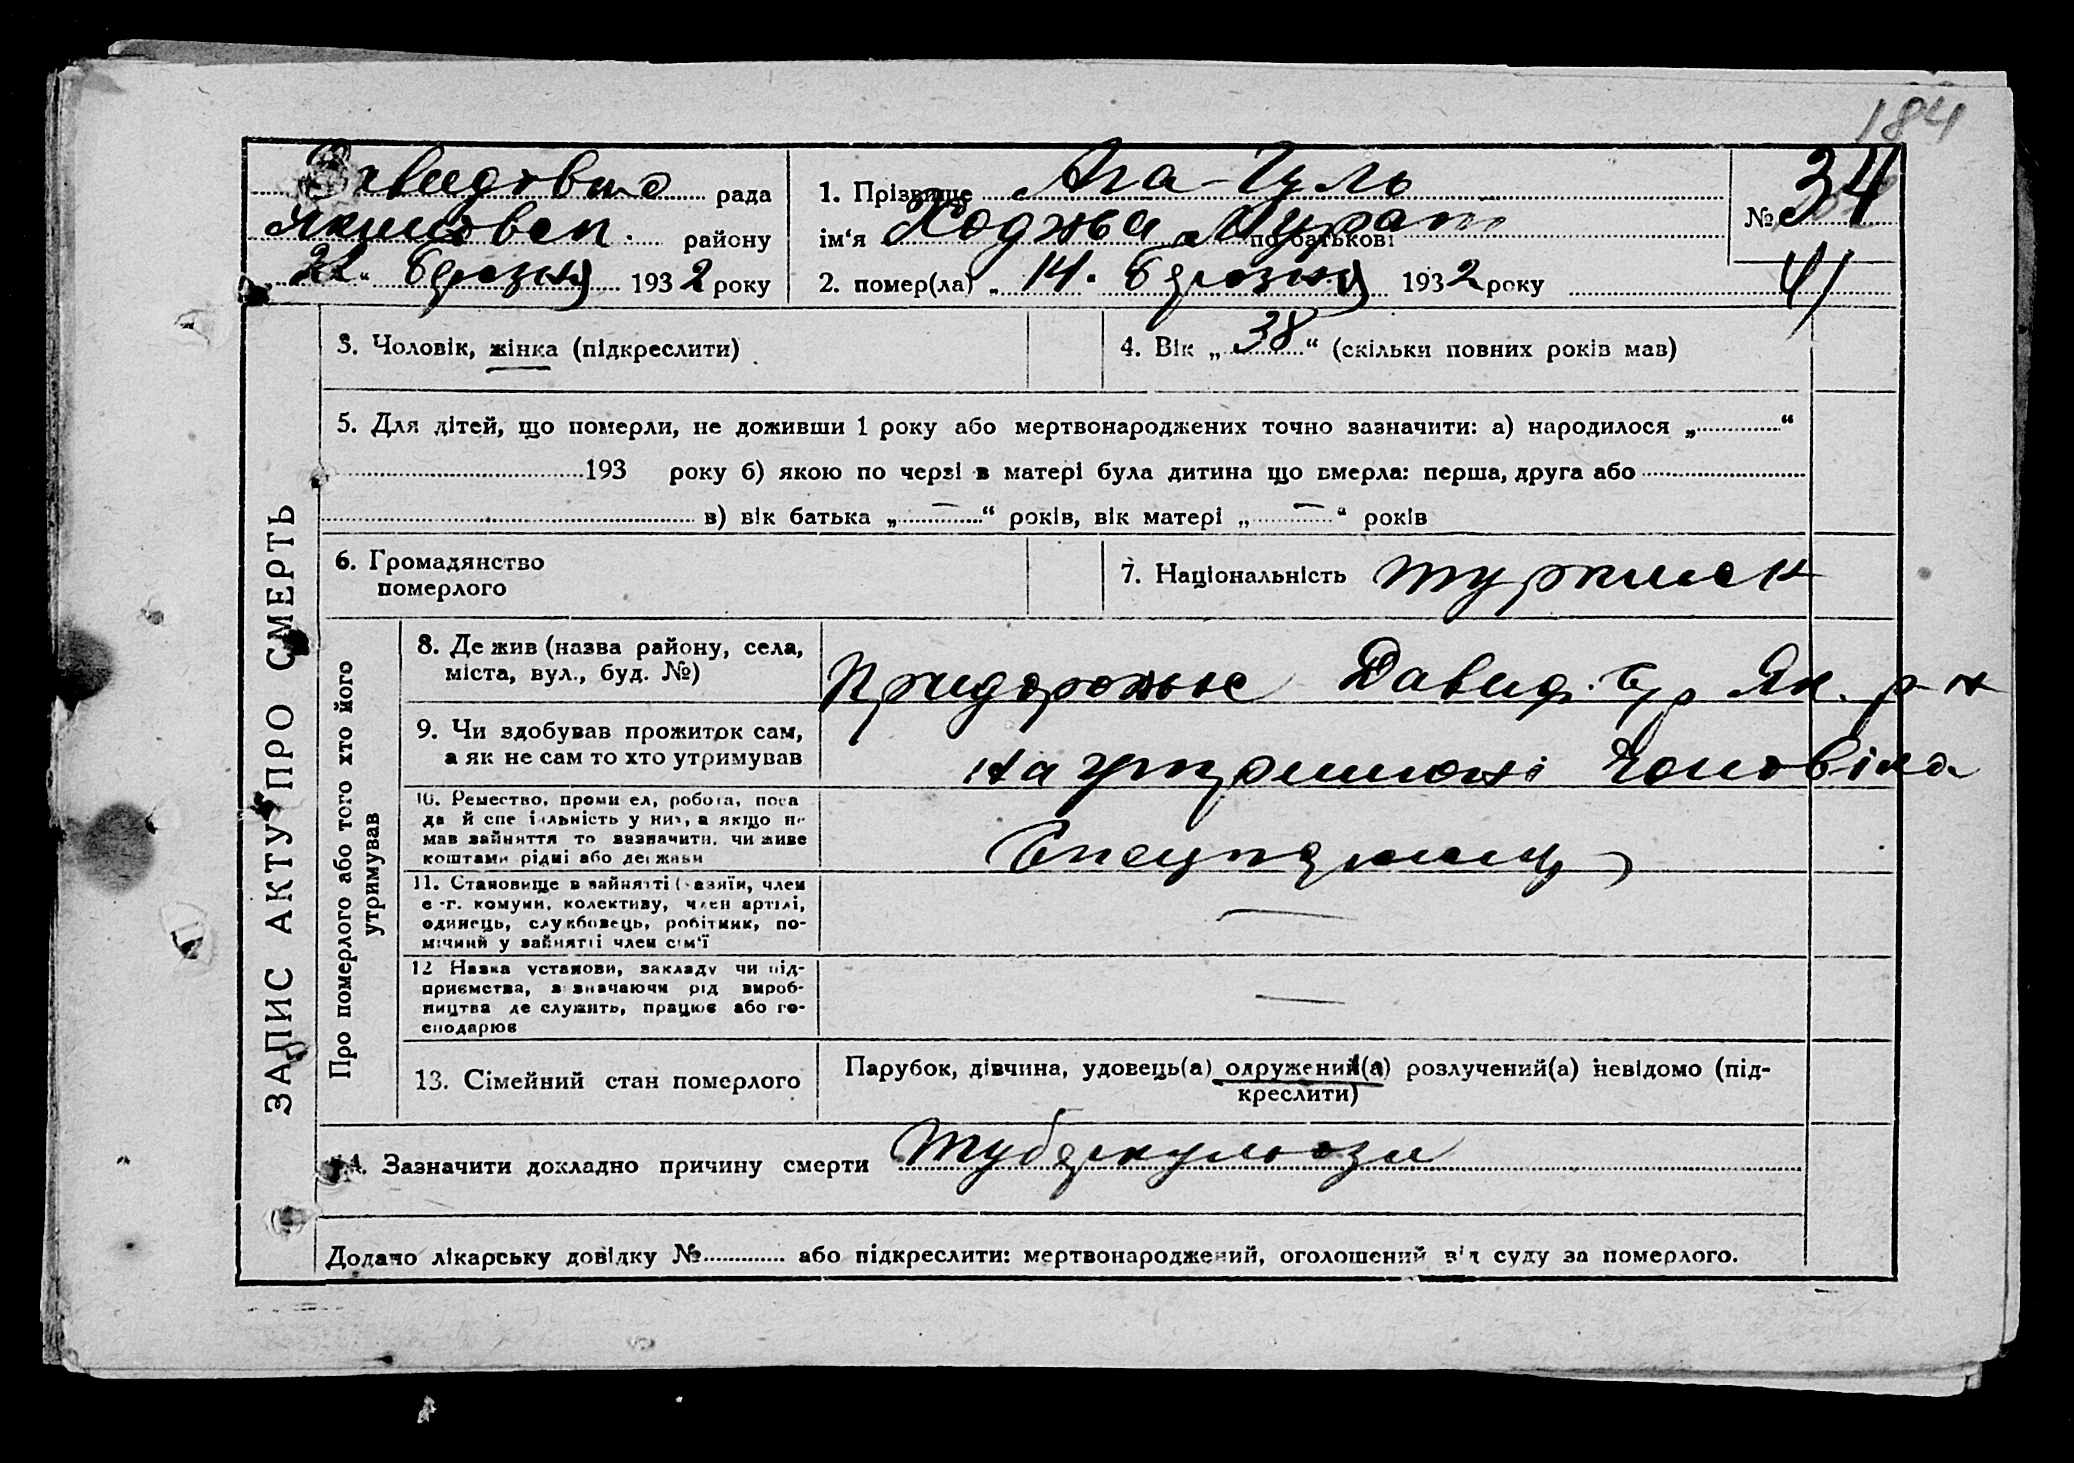 184
Давидовка рада
Якимовск. району
22 „ березня 1932 року
1. Прізвище Ага-Гуль
ім‘я Ходжа Мурат по батькові
2. помер(ла) „ 14. березня 1932 року
№ 34
41
ЗАПИС АКТУ ПРО СМЕРТЬ
3. Чоловік, жінка (підкреслити)
4. Вік „ 38 “ (скільки повних років мав)
5. Для дітей, що померли, не доживши 1 року або мертвонароджених точно зазначити: а) народилося „ “
193 року б) якою по черзі в матері була дитина що вмерла: перша, друга або
в) вік батька „ — “ років, вік матері „ — “ років
6. Громадянство
померлого
7. Національність туркмен
Про померлого або того хто його
утримував
8. Де жив (назва району, села,
міста, вул., буд. №)
Придорожнє Давид. с/р Як. р-н
9. Чи здобував прожиток сам,
а як не сам то хто утримував
на утриманні чоловіка
10. Ремество, промисел, робота, поса
да й спеціальність у них, а якщо не
мав зайняття то зазначити, чи живе
коштами рідні або держави
11. Становище в зайнятті (хазяїн, член
с.-г. комуни, колективу, член артілі,
одинець, службовець, робітник, по-
мічний у зайнятті член сім'ї
—
12 Назва установи, закладу чи під-
приємства, зазначаючи рід вироб-
ництва де служить, працює або го-
сподарює
—
13. Сімейний стан померлого
Парубок, дівчина, удовець(а) одружений(а) розлучений(а) невідомо (під-
креслити)
14. Зазначити докладно причину смерти туберкульози
Додано лікарську довідку № або підкреслити: мертвонароджений, оголошений від суду за померлого.